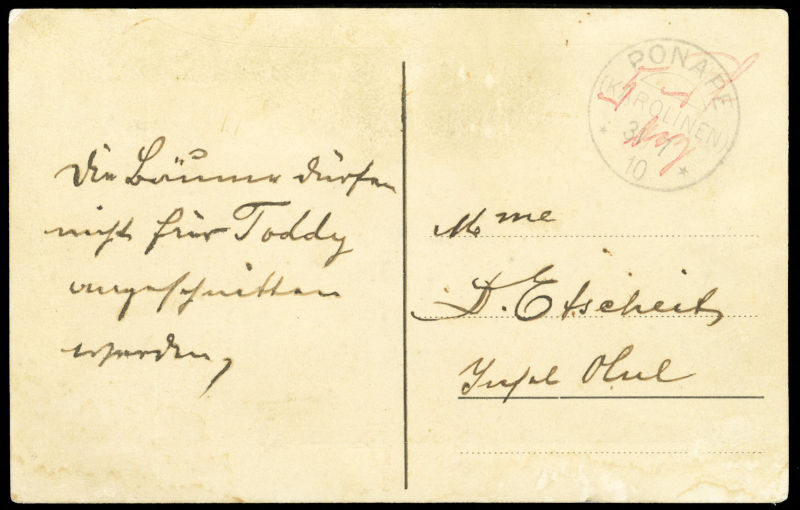 Die Bäume dürfen
nicht für Toddy
angeschnitten
werden,
PONAPE
(KAROLINEN)
10
Mme
D. Etscheit
Insel